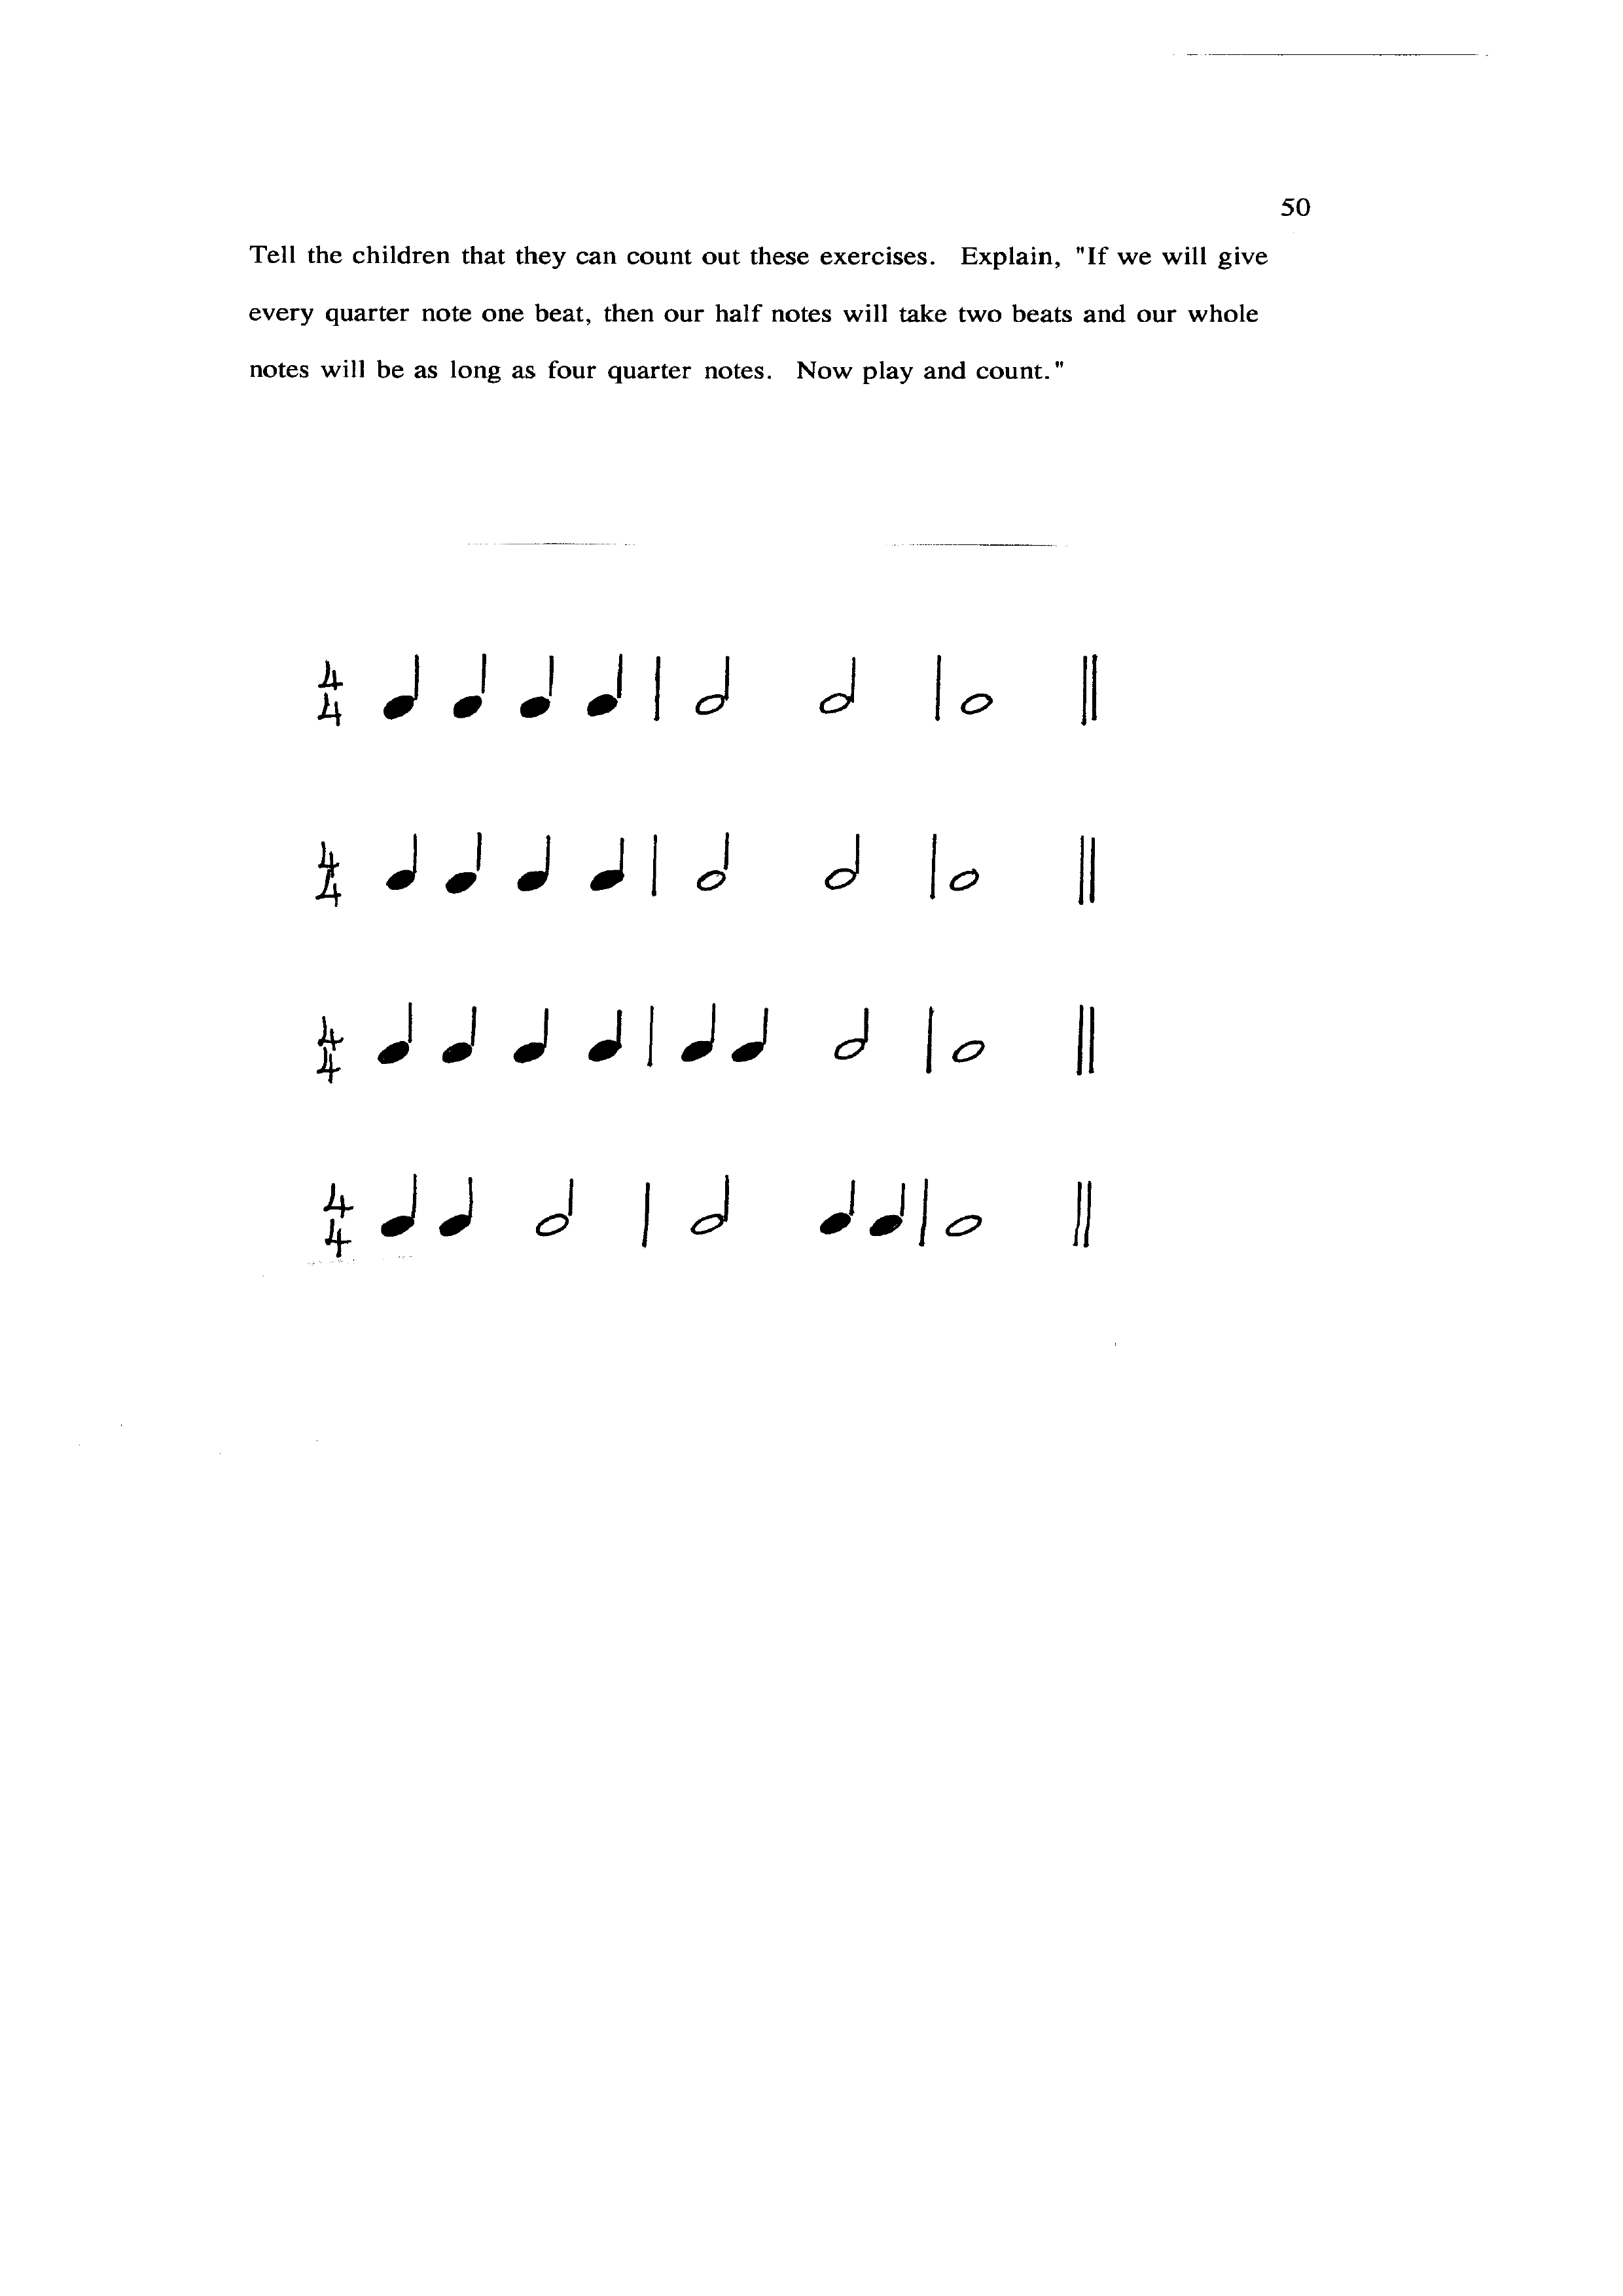 50
Tell the children that they can count out these exercises. Explain, "If we will give
every quarter note one beat, then our half notes will take two beats and our whole
notes will be as long as four quarter notes. Now play and count."
4
4
4
4
4
4
4
4